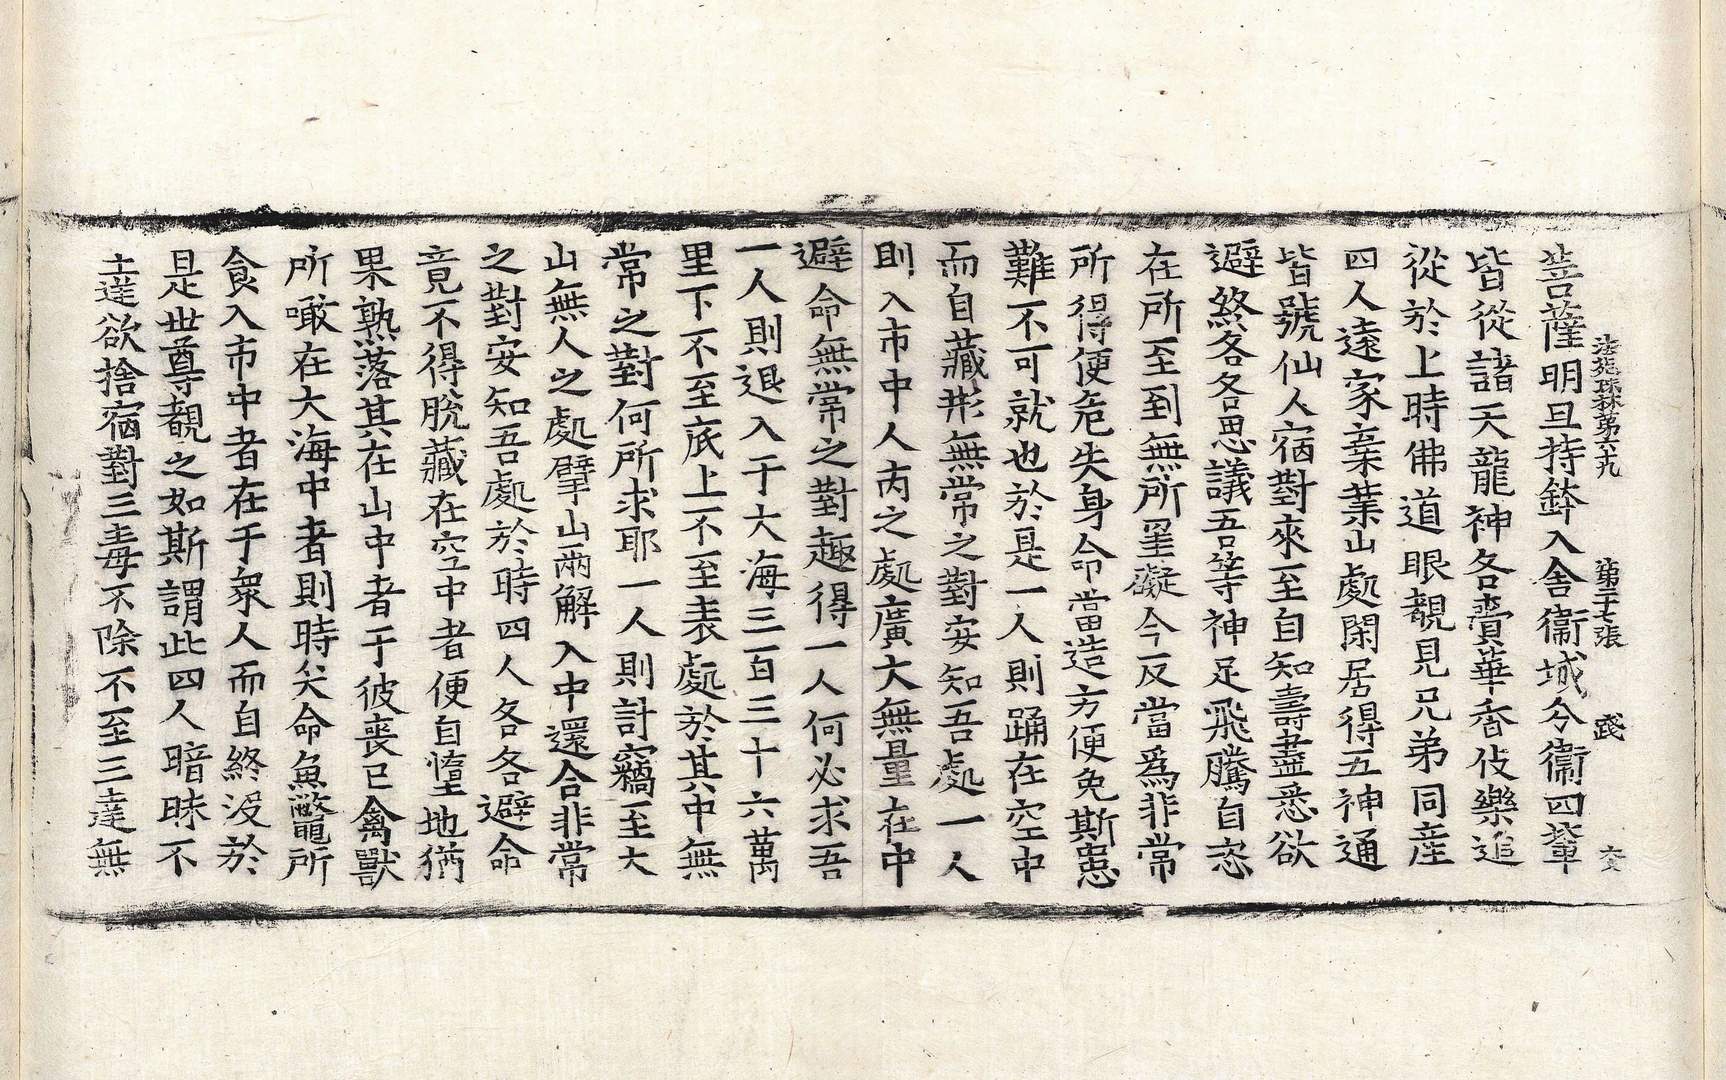 法苑珠林第六十九 第二十七張 践 六文
菩薩明旦持鉢入舍衛城今衛四輩
皆從諸天龍神各賷華香伎樂追
從於上時佛道眼覩見兄弟同産
四人遠家棄業山處閑居得五神通
皆號仙人宿對來至自知壽盡悉欲
避終各各思議吾等神足飛騰自恣
在所至到無所罣礙今反當爲非常
所得便危失身命當造方便免斯患
難不可就也於是一人則踊在空中
而自藏形無常之對安知吾處一人
則入市中人㐫之處廣大無量在中
避命無常之對趣得一人何必求吾
一人則退入于大海三百三十六萬
里下不至底上不至表處於其中無
常之對何所求耶一人則計竊至大
山無人之處擘山兩解入中還合非常
之對安知吾處於時四人各各避命
竟不得脫藏在空中者便自墮地猶
果熟落其在山中者于彼喪已禽獸
所噉在大海中者則時夭命魚鼈所
食入市中者在于衆人而自終沒於
是世尊覩之如斯謂此四人暗昧不
達欲捨宿對三毒不除不至三達無